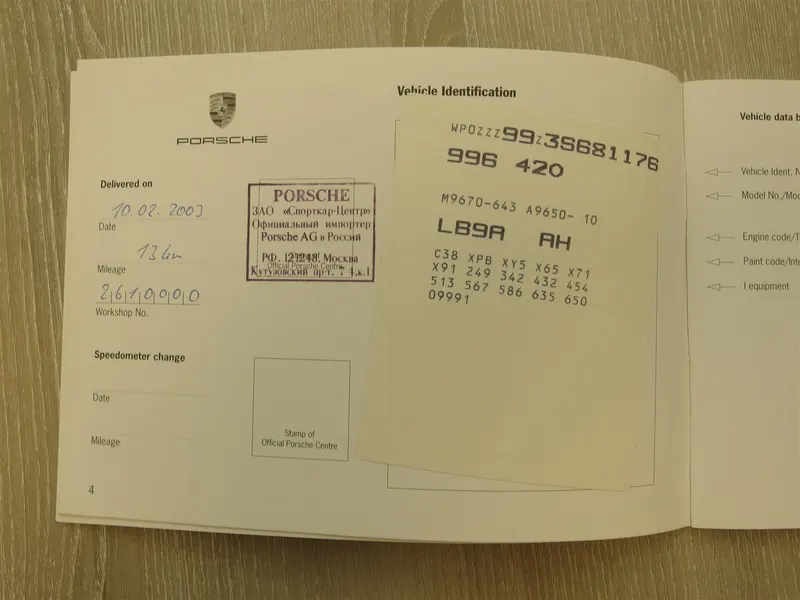 PORSCHE
Delivered on
10.02.2003
Date
13 km
Mileage
2 6 1 0 0 0 0
Workshop No.
Speedometer change
Date
Mileage
4
PORSCHE
ЗАО «Спорткар-Центр»
Официальный импортер
Porsche AG в России
РФ, 121248, Москва
Official Porsche Centre
Кутузовский пр-т, 4.к.1
Stamp of
Official Porsche Centre
Vehicle Identification
WPOZZZ99Z3S681176
996 420
M9670-643 A9650- 10
LB9A AH
C38 XPB XY5 X65 X71
X91 249 342 432 454
513 567 586 635 650
09991
Vehicle data
Vehicle Ident.
Model No./
Engine code/
Paint code/
equipment